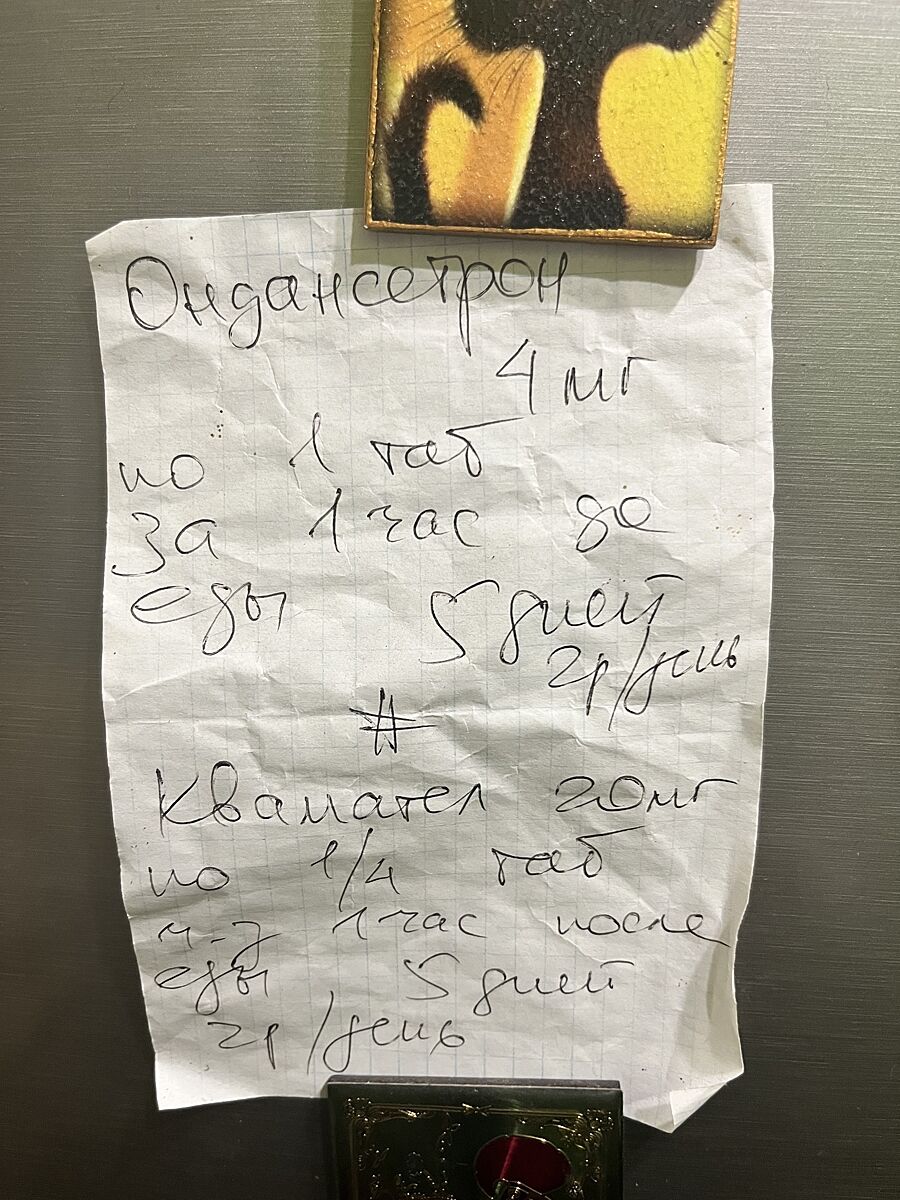 Ондансетрон
4 мг
по 1 таб
за 1 час до
еды 5 дней
2р/день
#
Квамател 20мг
по 1/4 таб
ч-з 1 час после
еды, 5 дней
2р/день